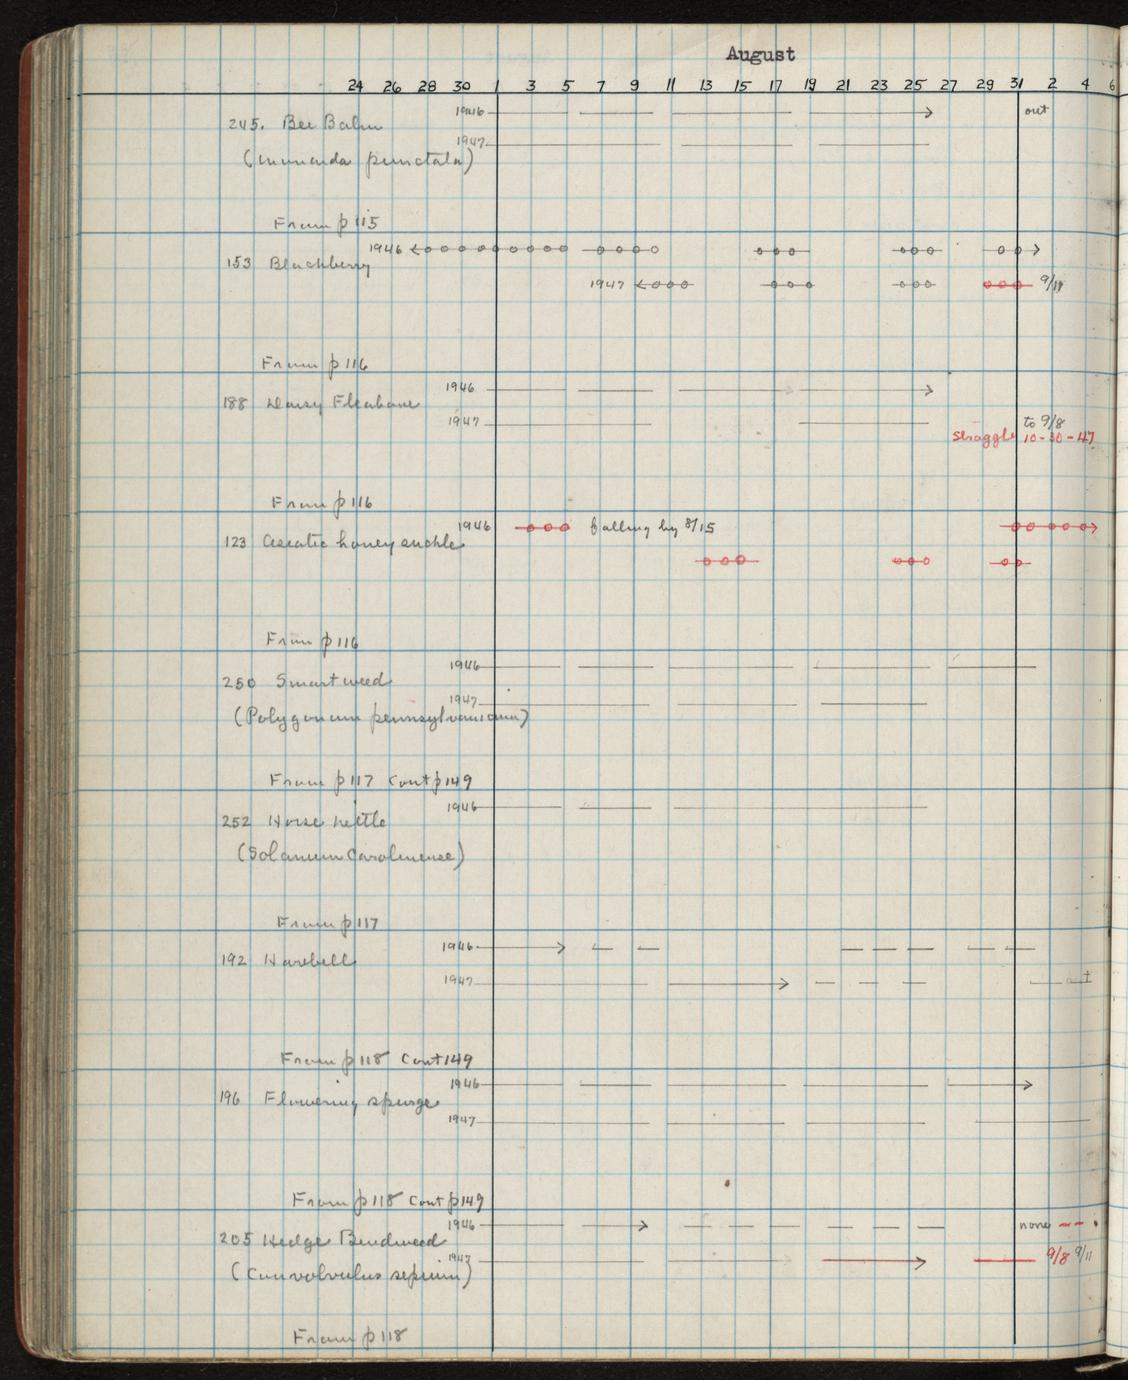 August
24 26 28 30 1 3 5 7 9 11 13 15 17 19 21 23 25 27 29 31 2 4 6
1946 out
245. Bee Balm
1947
(monarda punctata)
From p 115
1946
153 Blackberry
1947 9/11
From p 116
1946
188 Daisy Fleabane
1947 to 9/8
straggle 10-30-47
From p 116
1946 falling by 8/15
123 Asiatic honeysuckle
From p 116
1946
250 Smartweed
1947
(Polygonum pennsylvanicum)
From p 117 Cont p 149
1946
252 Horse nettle
(Solanum Carolinense)
From p 117
1946
192 Harebell
1947 out
From p 118 Cont 149
1946
196 Flowering spurge
1947
From p 118 Cont p 149
1946 none
205 Hedge Bindweed
1947 9/8 9/11
(Convolvulus sepium)
From p 118